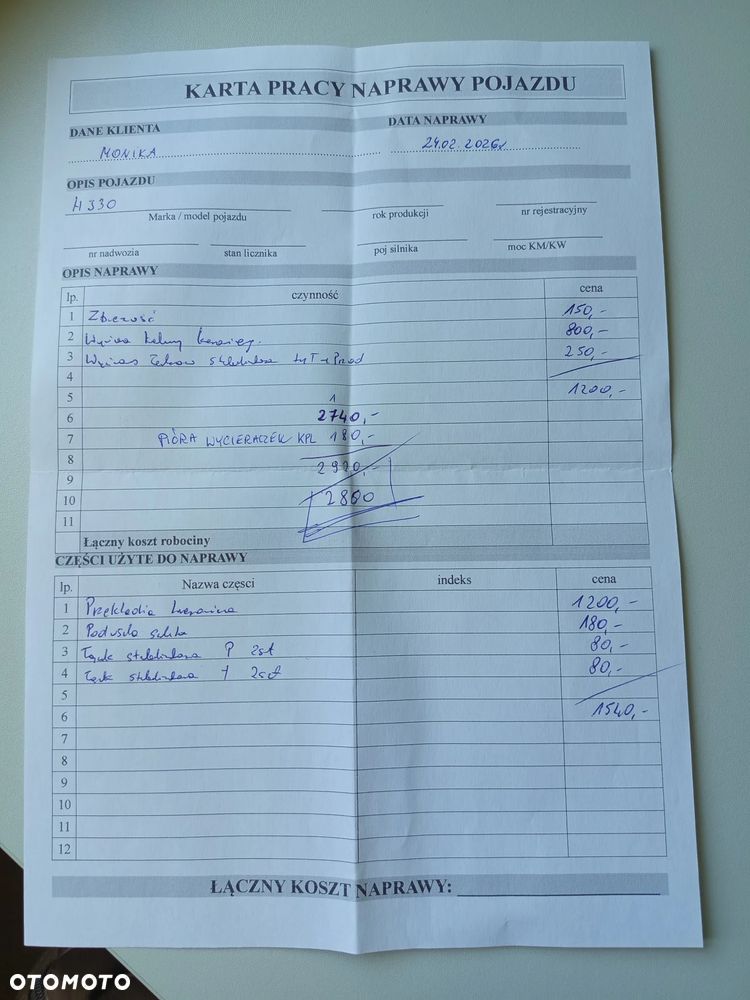 KARTA PRACY NAPRAWY POJAZDU
DANE KLIENTA DATA NAPRAWY
MONIKA 24.02.2026r
OPIS POJAZDU
Marka / model pojazdu rok produkcji nr rejestracyjny
nr nadwozia stan licznika poj silnika moc KM/KW
OPIS NAPRAWY
lp. czynność cena
1 Zbieżność 150,-
2 800,-
3 250,-
4
5 1200,-
6 2740,-
7 PIÓRA WYCIERACZEK KPL 180,-
8 2920,-
9
10 2800
11
Łączny koszt robociny
CZĘŚCI UŻYTE DO NAPRAWY
lp. Nazwa częsci indeks cena
1 1200,-
2 180,-
3 P 2szt 80,-
4 T 2szt 80,-
5
6 1540,-
7
8
9
10
11
12
ŁĄCZNY KOSZT NAPRAWY:
OTOMOTO